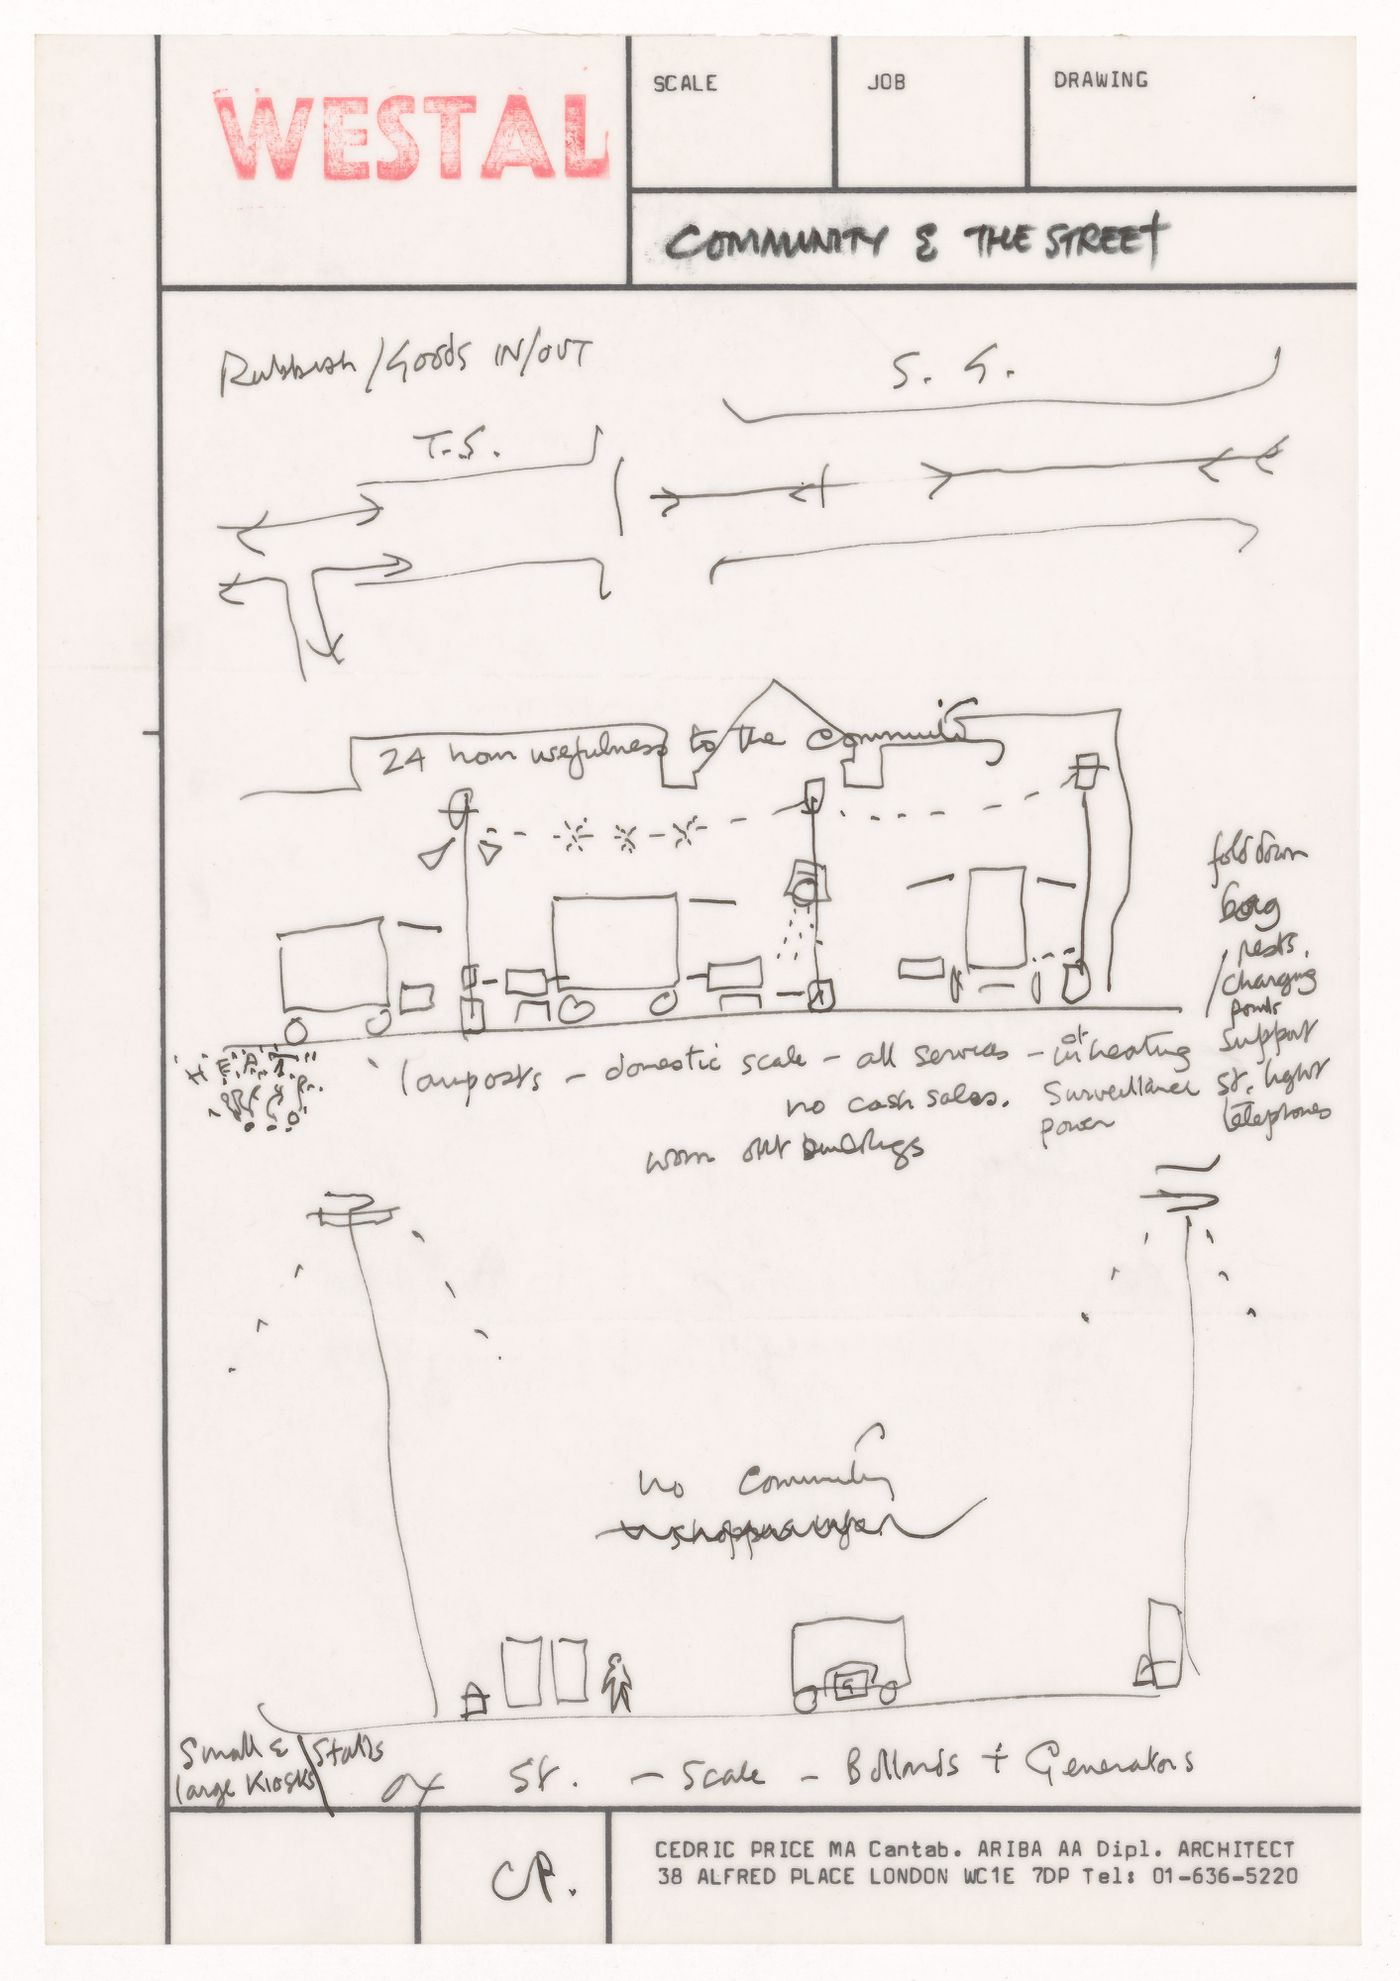 WESTAL
SCALE
JOB
DRAWING
COMMUNITY & THE STREET
Rubbish / Goods IN/OUT
S. G.
T.S.
24 hour usefulness to the community
fold down
rests.
/ changing
points
support
st. light
telephones
HEAT
lamposts - domestic scale - all services - heating
no cash sales. surveillance
power
worn out buildings
no community
Small & Stalls
large Kiosks
Ox St. - Scale - Bollards + Generators
CP.
CEDRIC PRICE MA Cantab. ARIBA AA Dipl. ARCHITECT
38 ALFRED PLACE LONDON WC1E 7DP Tel: 01-636-5220